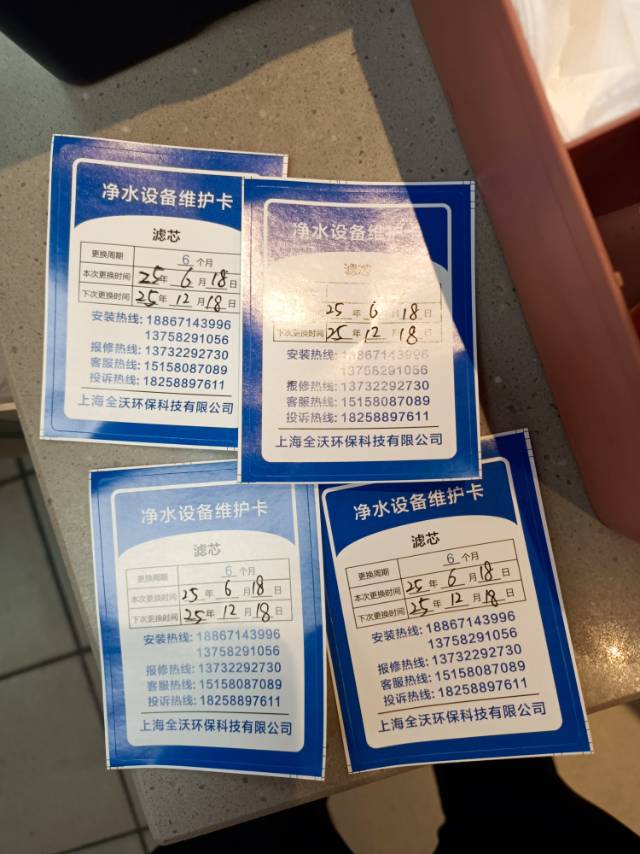 净水设备维护卡
滤芯
更换周期 6 个月
本次更换时间 25 年 6 月 18 日
下次更换时间 25 年 12 月 18 日
安装热线: 18867143996
13758291056
报修热线: 13732292730
客服热线: 15158087089
投诉热线: 18258897611
上海全沃环保科技有限公司
净水设备维护卡
滤芯
25 年 6 月 18 日
下次更换时间 25 年 12 月 18 日
安装热线: 18867143996
13758291056
报修热线: 13732292730
客服热线: 15158087089
投诉热线: 18258897611
上海全沃环保科技有限公司
净水设备维护卡
滤芯
更换周期 6 个月
本次更换时间 25 年 6 月 18 日
下次更换时间 25 年 12 月 18 日
安装热线: 18867143996
13758291056
报修热线: 13732292730
客服热线: 15158087089
投诉热线: 18258897611
上海全沃环保科技有限公司
净水设备维护卡
滤芯
更换周期 6 个月
本次更换时间 25 年 6 月 18 日
下次更换时间 25 年 12 月 18 日
安装热线: 18867143996
13758291056
报修热线: 13732292730
客服热线: 15158087089
投诉热线: 18258897611
上海全沃环保科技有限公司